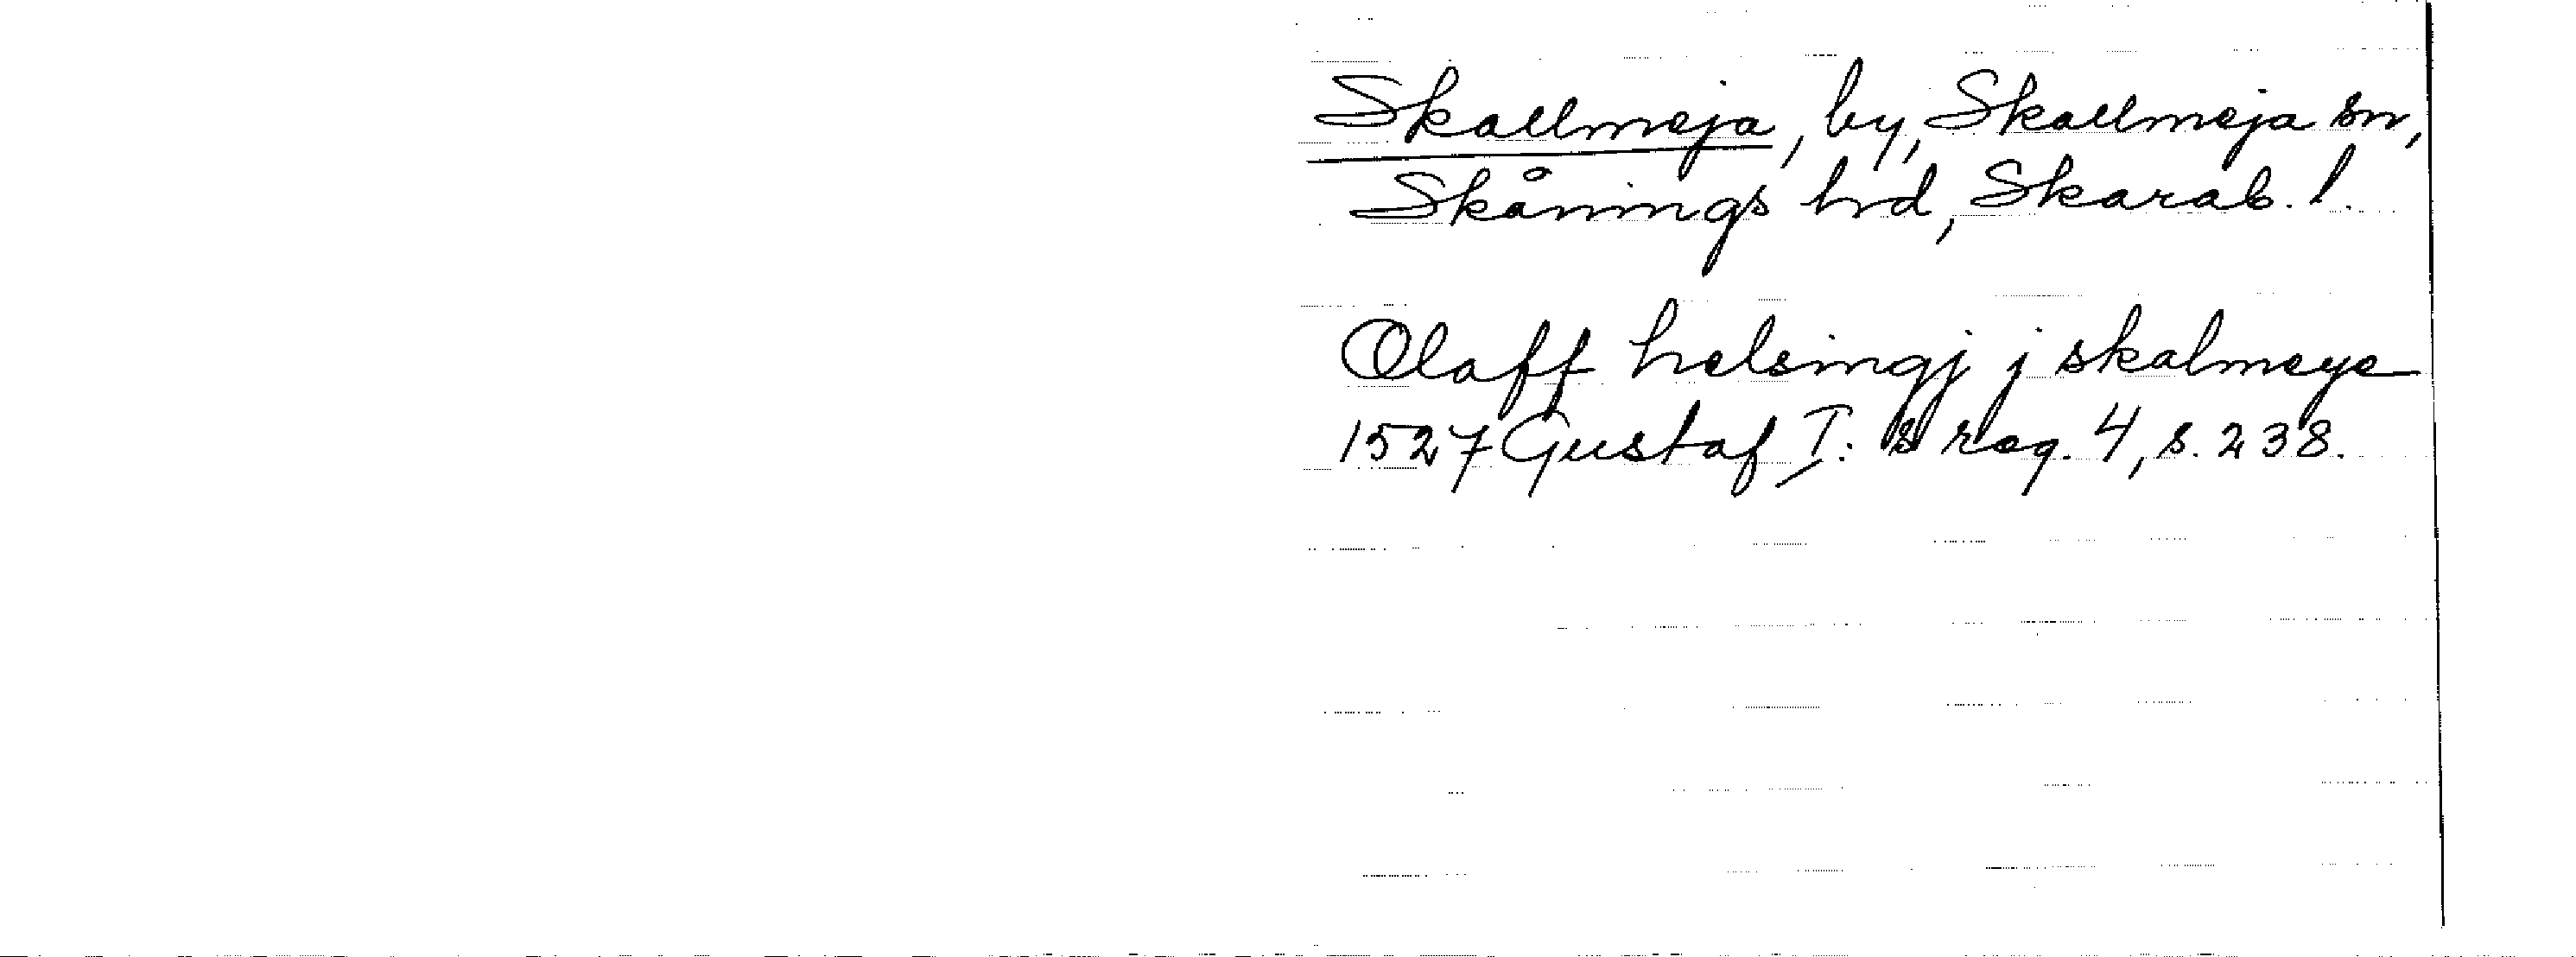 Skallmeja, by, Skallmeja sn,
Skånings hd, Skarab. l.
Olaff helsingj j skalmeye
1527 Gustaf I:s reg. 4, s. 238.